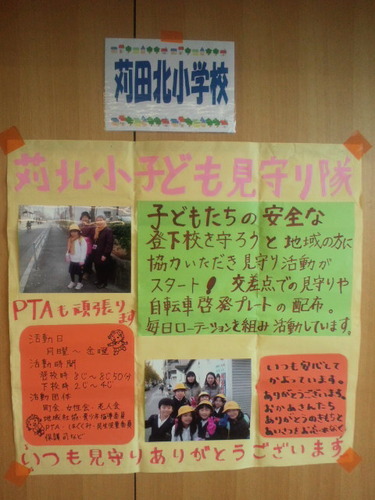 苅田北小学校
苅北小子ども見守り隊
子どもたちの安全な
登下校を守ろうと地域の方に
協力いただき見守り活動が
スタート！交差点での見守りや
自転車啓発プレートの配布。
毎日ローテーションを組み活動しています。
PTAも頑張ります
活動日
月曜～金曜
活動時間
登校時 8じ～8じ50分
下校時 2じ～4じ
活動団体
町会・女性会・老人会
いつも安心して
かよっています。
ありがとうございます。
おかあさんたち
ありがとうのきもちと
いつも見守りありがとうございます